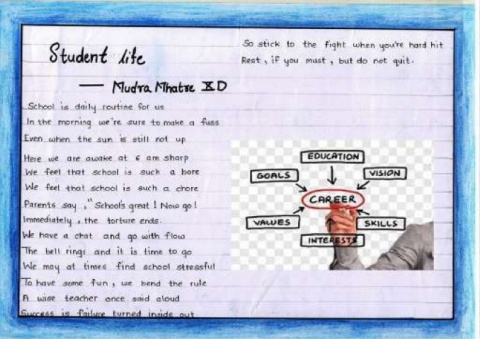 Student life
— Mudra Mhatre XD
School is daily routine for us
In the morning we're sure to make a fuss
Even when the sun is still not up
Here we are awake at 6 am sharp
We feel that school is such a bore
We feel that school is such a chore
Parents say, "School's great! Now go!
Immediately, the torture ends.
We have a chat and go with flow
The bell rings and it is time to go
We may at times find school stressful
To have some fun, we bend the rule
A wise teacher once said aloud
Success is failure turned inside out
So stick to the fight when you're hard hit
Rest, if you must, but do not quit.
EDUCATION
GOALS
VISION
CAREER
VALUES
SKILLS
INTERESTS